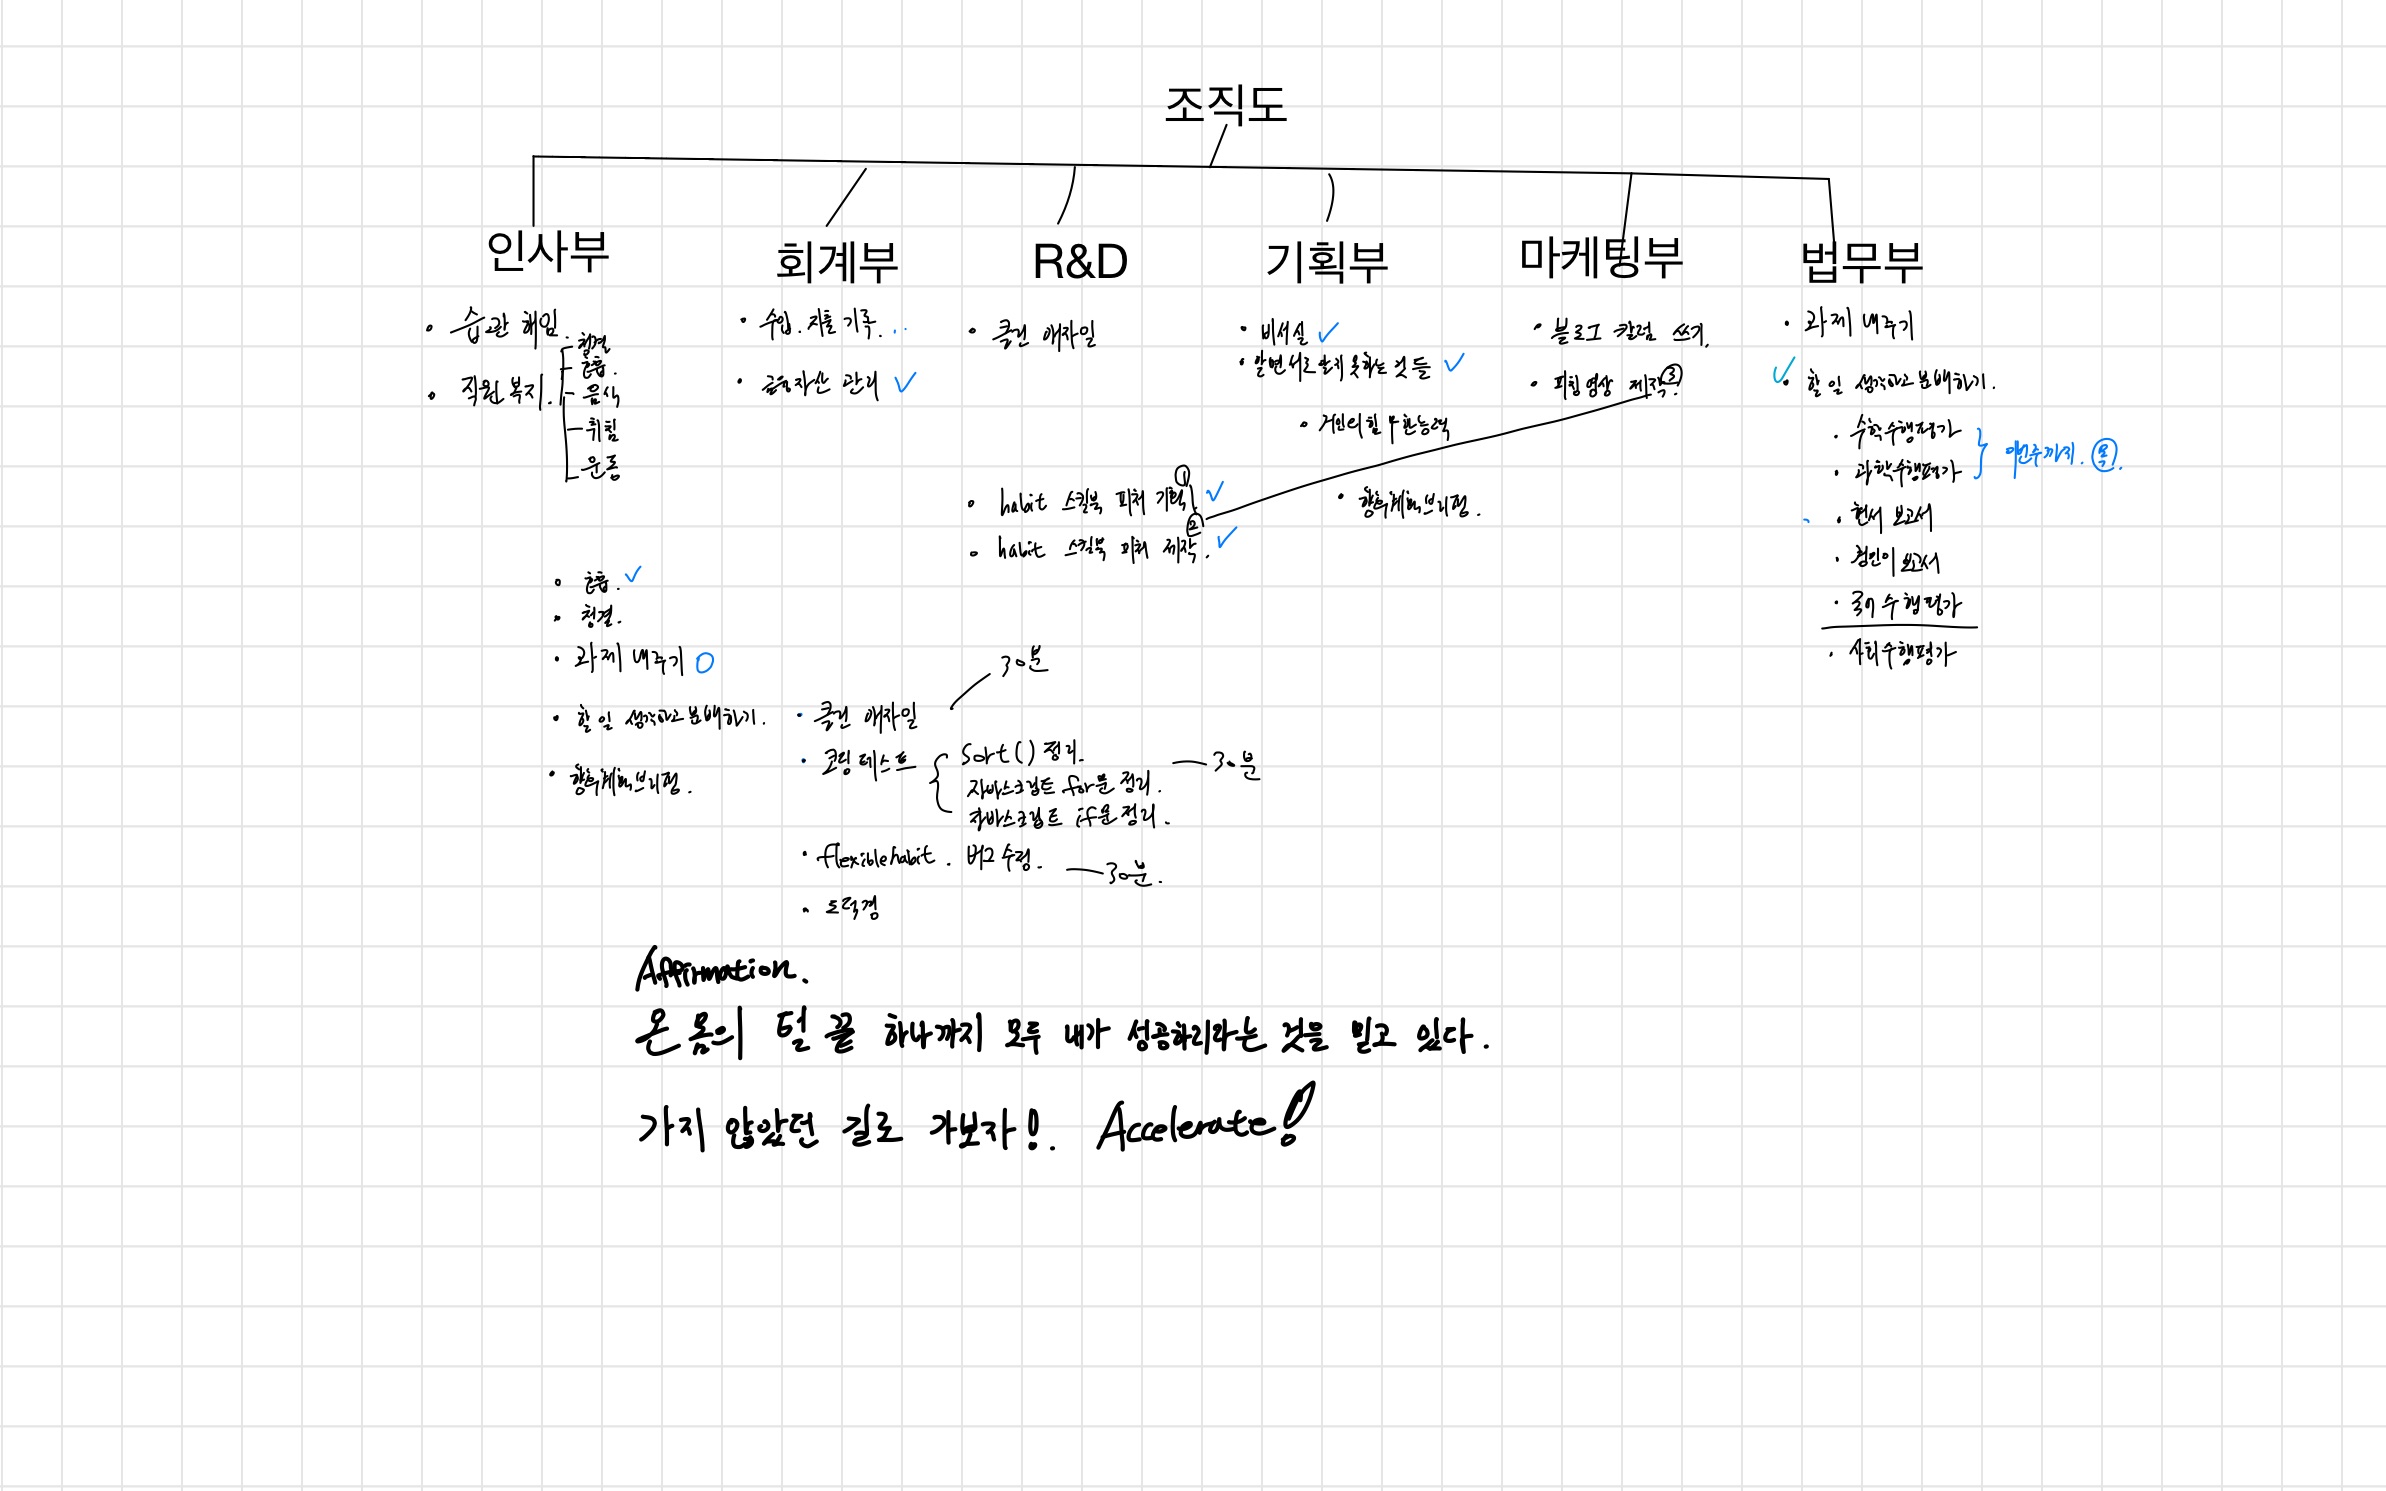 조직도
인사부
회계부
R&D
기획부
마케팅부
법무부
• 습관 해임.
• 직원 복지.
청결
호흡.
음식
취침
운동
• 수입. 지출 기록...
• 금융자산 관리 ✓
• 클린 애자일
• habit 스킬북 피쳐 기획 ① ✓
• habit 스킬북 피쳐 제작. ② ✓
• 비서실 ✓
• 알면서도 알지 못하는 것들 ✓
• 거인의 힘 무한능력
• 향후계획브리핑.
• 블로그 칼럼 쓰기.
• 피칭영상 제작. ③
• 과제 내주기
✓ • 할 일 생각하고 분배하기.
• 수학수행평가
• 과학수행평가
이번주까지. 목.
• 현서 보고서
• 정민이 보고서
• 국어 수행평가
• 사회수행평가
• 호흡. ✓
• 청결.
• 과제 내주기 O
• 할 일 생각하고 분배하기.
• 향후계획브리핑.
• 클린 애자일
30분
• 코딩테스트
Sort() 정리.
자바스크립트 for문 정리.
자바스크립트 if문 정리.
30분
• flexiblehabit. 버그 수정.
30분.
• 도덕경
Affirmation.
온 몸의 털 끝 하나까지 모두 내가 성공하리라는 것을 믿고 있다.
가지 않았던 길로 가보자!. Accelerate!